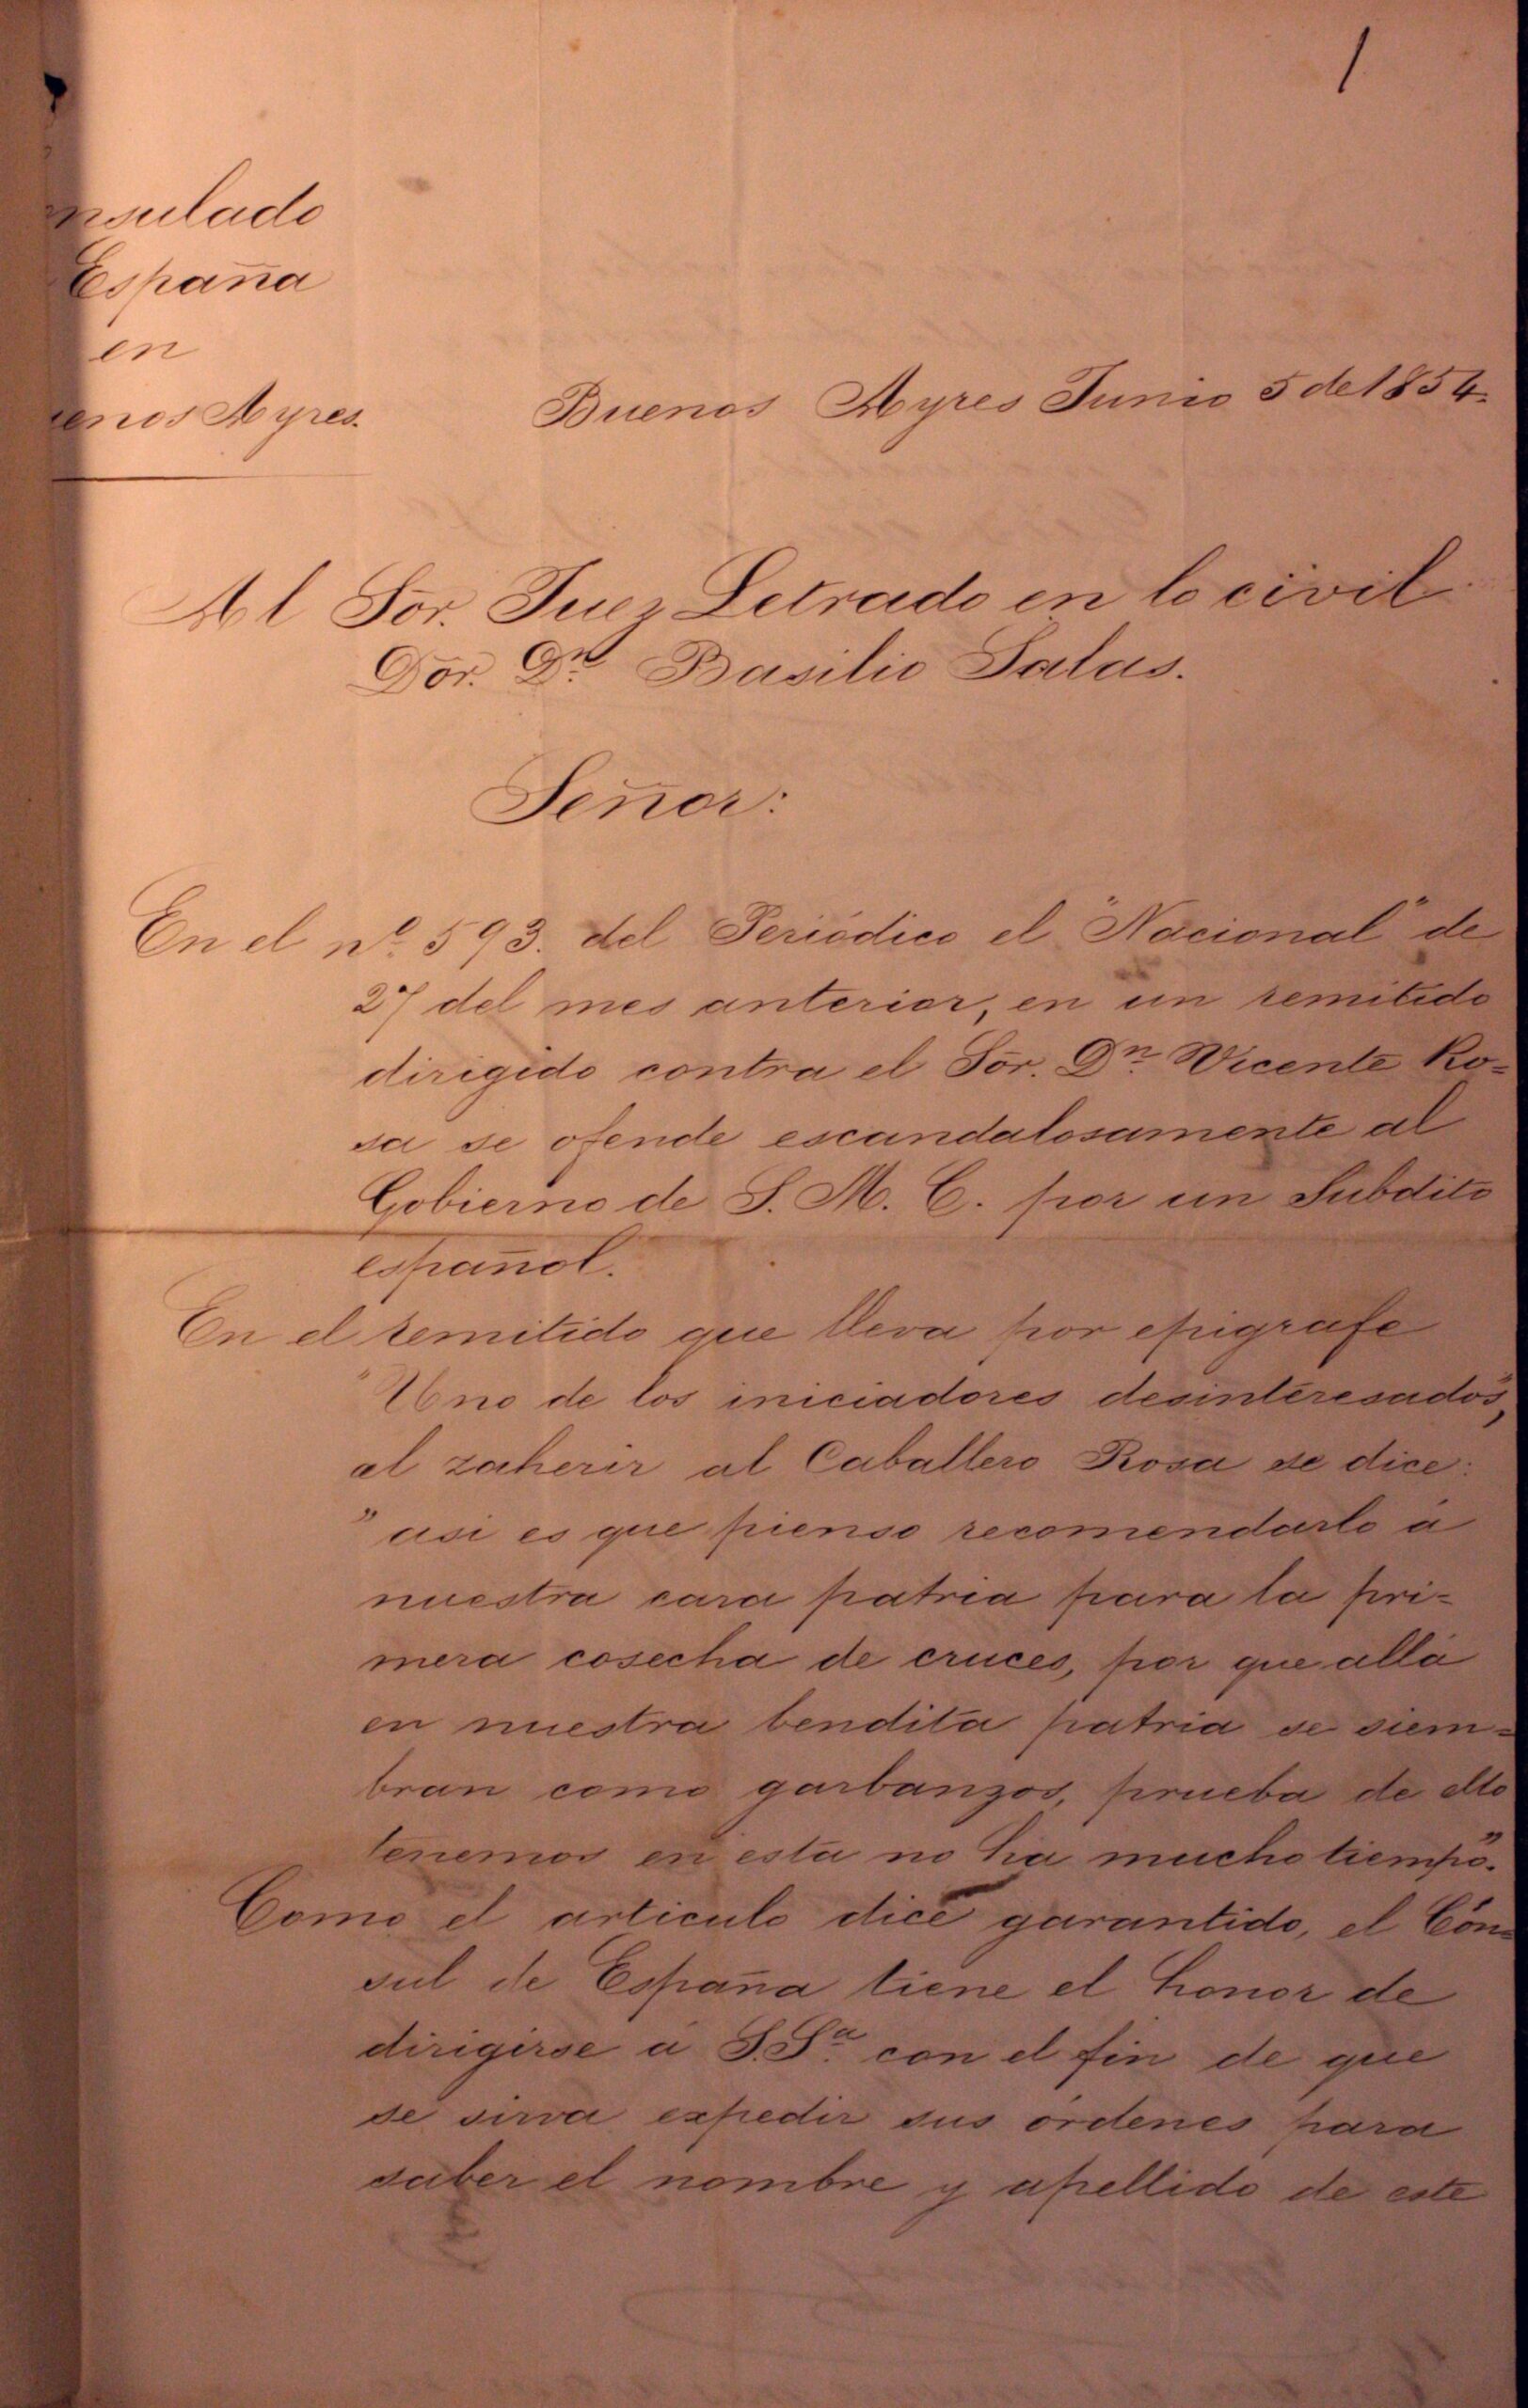 1
nsulado
España
en
enos Ayres.
Buenos Ayres Junio 5 de 1854.
Al Sor. Juez Letrado en lo civil
Dor. Dn. Basilio Salas.
Señor:
En el nº 593. del Periódico el "Nacional" de
27 del mes anterior, en un remitido
dirigido contra el Sor. Dn. Vicente Ro=
sa se ofende escandalosamente al
Gobierno de S. M. C. por un Subdito
español.
En el remitido que lleva por epigrafe
"Uno de los iniciadores desinteresados",
al zaherir al Caballero Rosa se dice:
"asi es que pienso recomendarlo á
nuestra cara patria para la pri=
mera cosecha de cruces, por que allá
en nuestra bendita patria se siem=
bran como garbanzos, prueba de ello
tenemos en esta no ha mucho tiempo".
Como el articulo dice garantido, el Cón=
sul de España tiene el honor de
dirigirse á S. Sa. con el fin de que
se sirva expedir sus órdenes para
saber el nombre y apellido de este